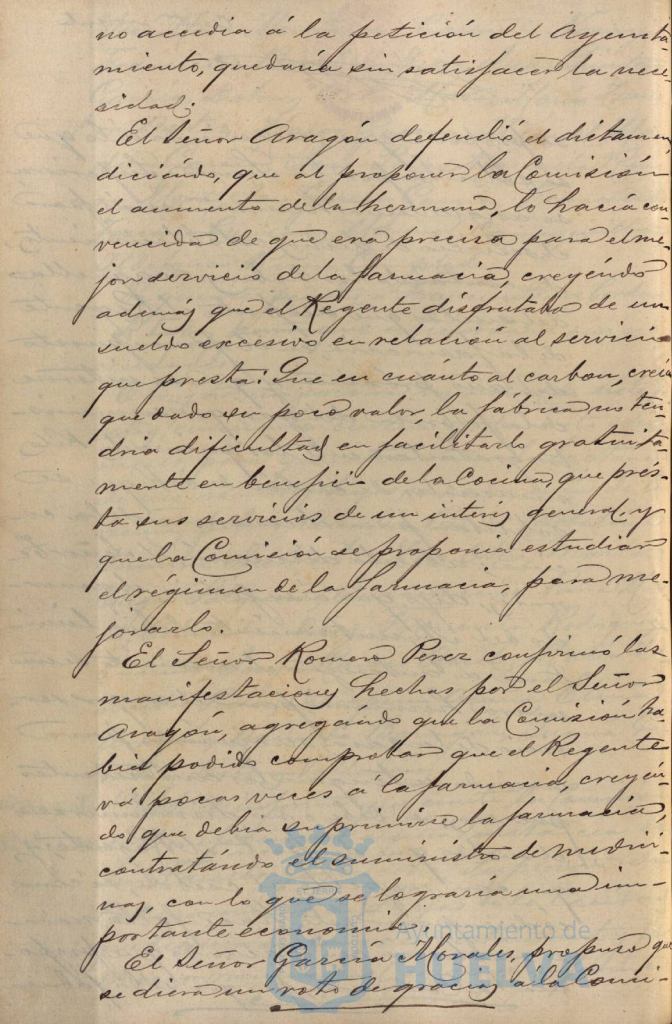 no accedia á la petición del Ayunta-
miento, quedaría sin satisfacer la nece-
sidad.
El Señor Aragón defendió el dictamen,
diciéndo, que al proponer la Comisión
el aumento de la hermana, lo hacia con-
vencida de que era preciso para el me-
jor servicio de la farmacia, creyéndo
además que el Regente disfrutaba de un
sueldo excesivo en relación al servicio
que presta: Que en cuánto al carbon, creia
que dado su poco valor, la fábrica no ten-
dria dificultad en facilitarlo gratuita-
mente en beneficio de la Cocina, que prés-
ta sus servicios de un interés general, y
que la Comisión se proponia estudiar
el régimen de la farmacia, para me-
jorarlo.
El Señor Romero Perez confirmó las
manifestaciones hechas por el Señor
Aragón, agregándo que la Comisión ha-
bia podido comprobar que el Regente
vá pocas veces á la farmacia, creyén-
do que debia suprimirse la farmacia,
contratándo el suministro de medici-
nas, con lo que se lograria una im-
portante economia.
El Señor García Morales, propuso que
se diera un voto de gracias á la Comi-
Ayuntamiento de
HUELVA